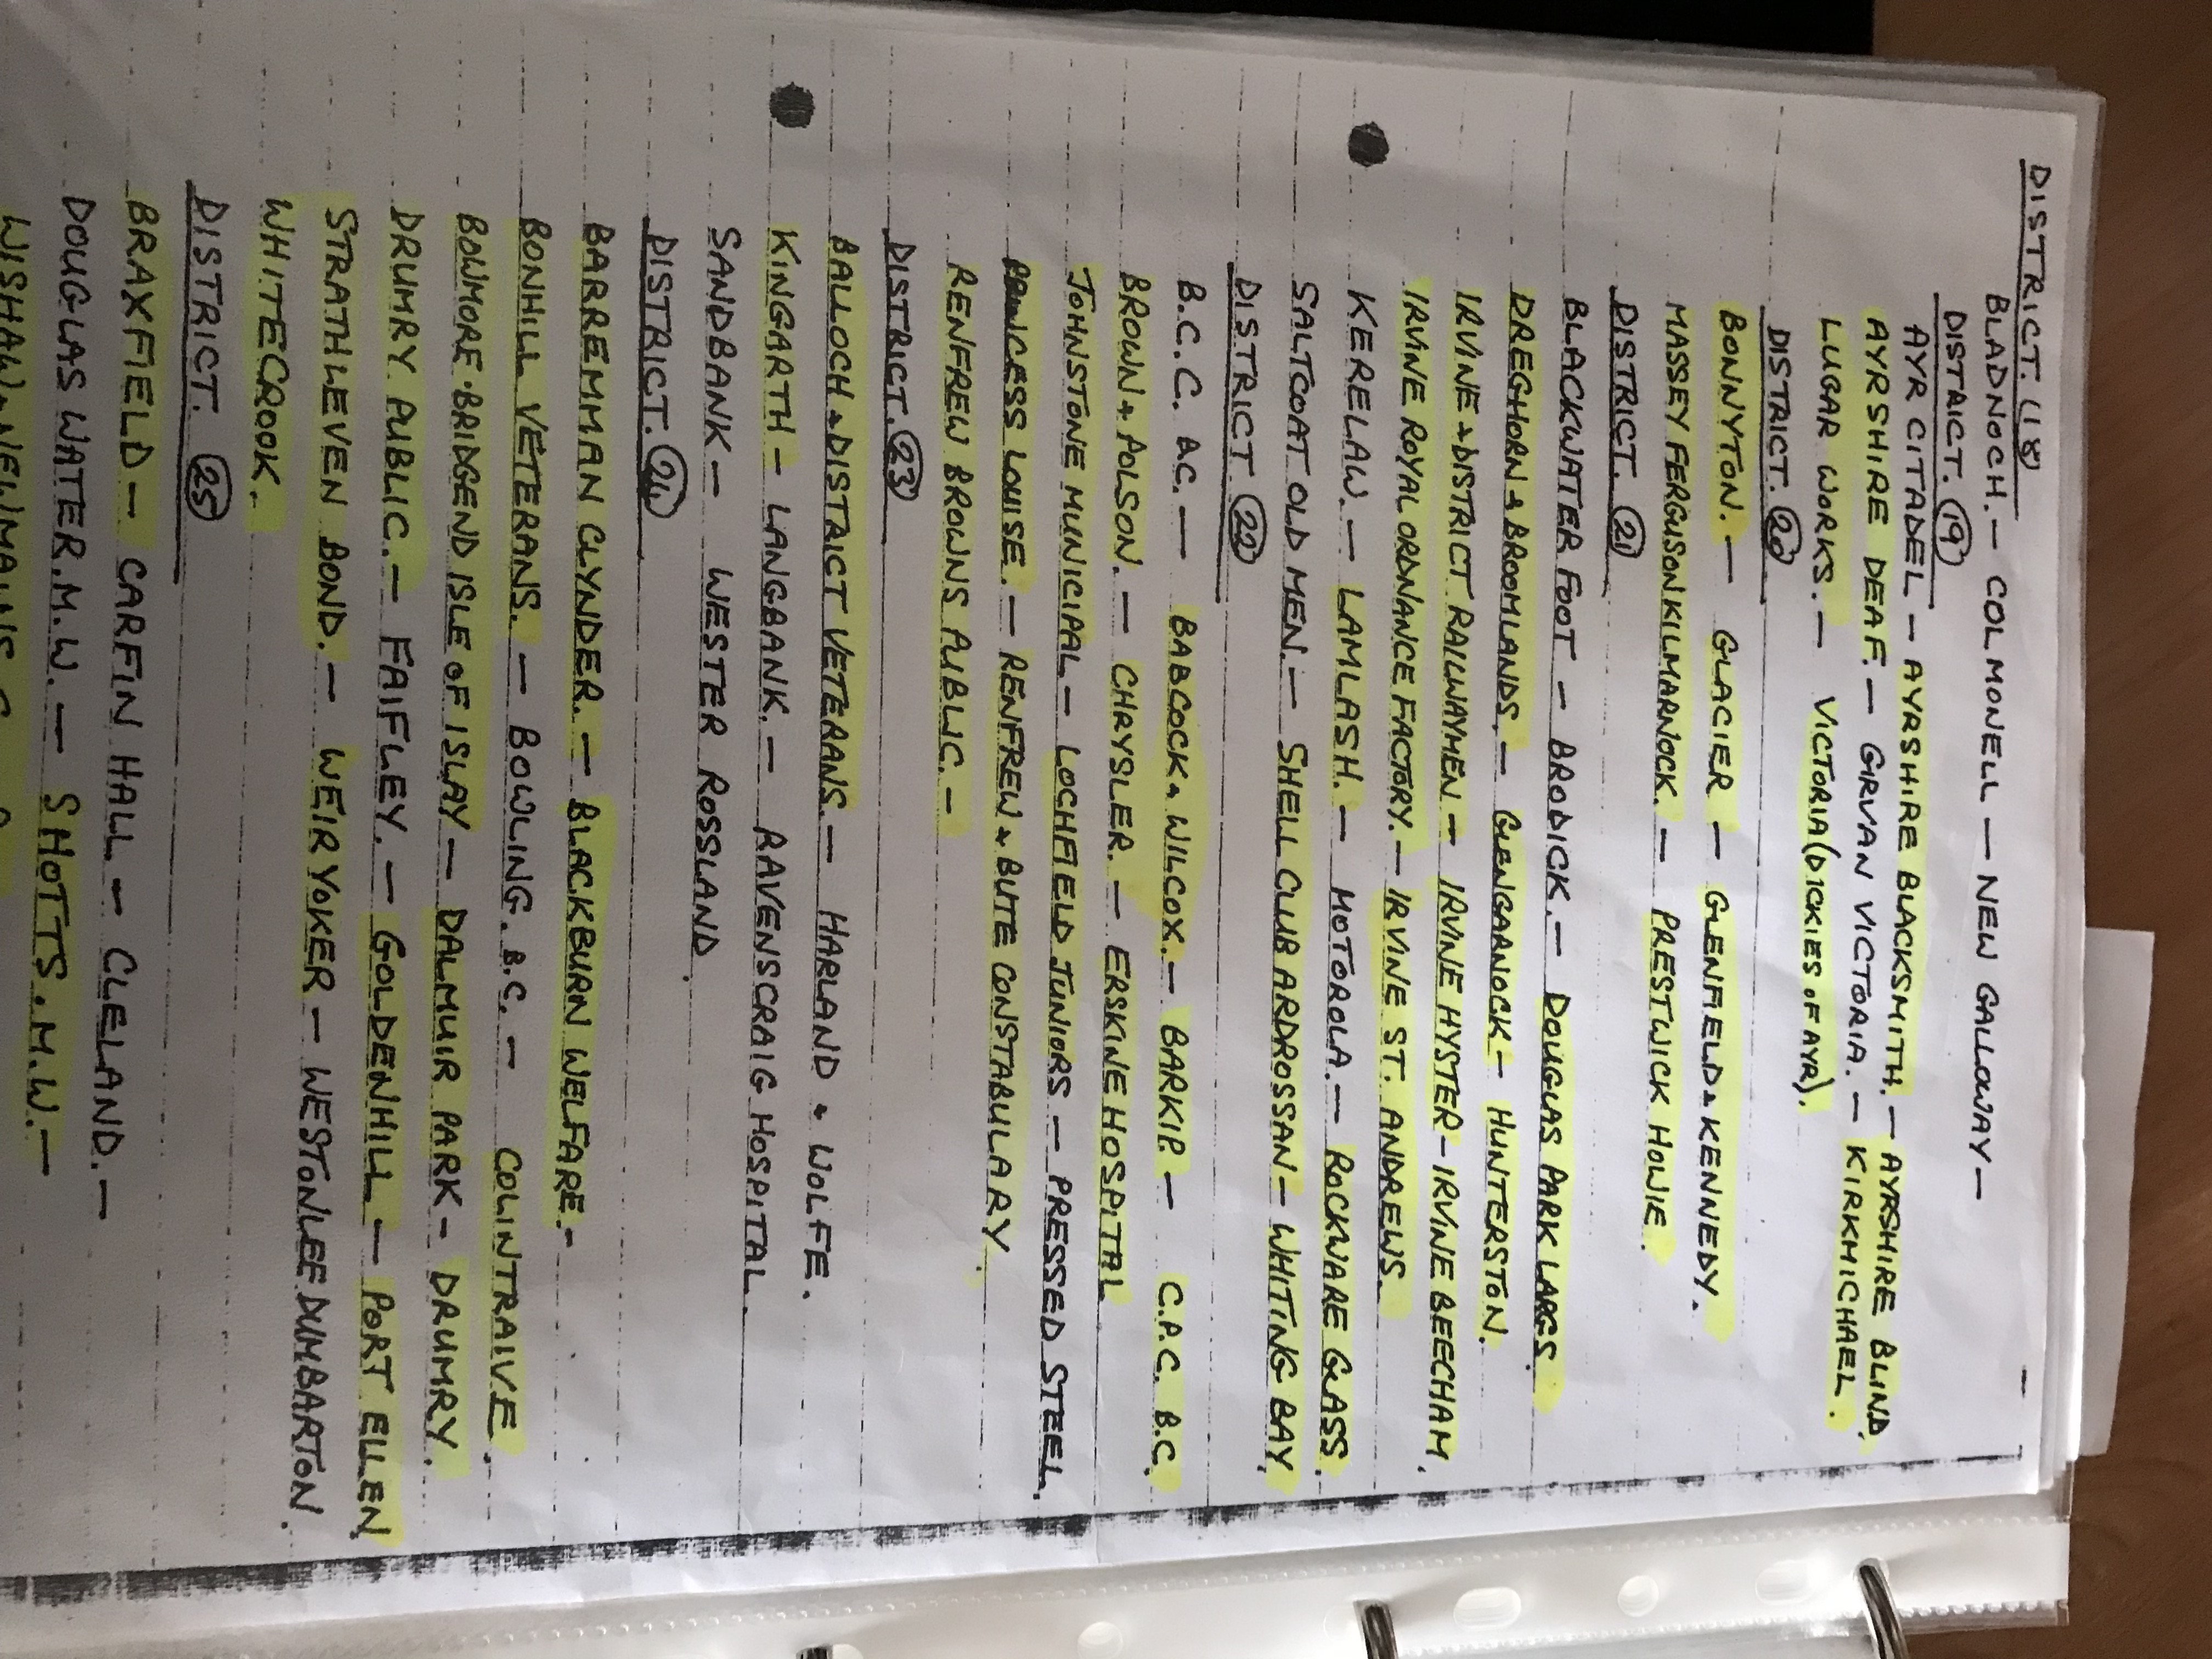 DISTRICT. (18)
BLADNOCH. — COLMONELL — NEW GALLOWAY —
DISTRICT. (19)
AYR CITADEL — AYRSHIRE BLACKSMITH. — AYRSHIRE BLIND.
AYRSHIRE DEAF. — GIRVAN VICTORIA. — KIRKMICHAEL.
LUGAR WORKS. — VICTORIA (DICKIES OF AYR).
DISTRICT. (20)
BONNYTON. — GLACIER — GLENFIELD & KENNEDY.
MASSEY FERGUSON KILMARNOCK. — PRESTWICK HOWIE.
DISTRICT. (21)
BLACKWATER FOOT — BRODICK. — DOUGLAS PARK LARGS.
DREGHORN & BROOMLANDS. — GLENGARNOCK — HUNTERSTON.
IRVINE & DISTRICT RAILWAYMEN — IRVINE HYSTER — IRVINE BEECHAM.
IRVINE ROYAL ORDNANCE FACTORY. — IRVINE ST. ANDREWS.
KERELAW. — LAMLASH. — MOTOROLA. — ROCKWARE GLASS.
SALTCOAT OLD MEN. — SHELL CLUB ARDROSSAN — WHITING BAY.
DISTRICT (22)
B.C.C. AC. — BABCOCK & WILCOX. — BARKIP. — C.P.C. B.C.
BROWN & POLSON. — CHRYSLER. — ERSKINE HOSPITAL
JOHNSTONE MUNICIPAL — LOCHFIELD JUNIORS — PRESSED STEEL.
PRINCESS LOUISE. — RENFREW & BUTE CONSTABULARY.
RENFREW BROWNS PUBLIC. —
DISTRICT. (23)
BALLOCH & DISTRICT VETERANS. — HARLAND & WOLFE.
KINGARTH — LANGBANK. — RAVENSCRAIG HOSPITAL.
SANDBANK — WESTER ROSSLAND.
DISTRICT. (24)
BARREMMAN CLYNDER. — BLACKBURN WELFARE. —
BONHILL VETERANS. — BOWLING. B.C. — COLINTRAIVE.
BOWMORE. BRIDGEND ISLE OF ISLAY — DALMUIR PARK — DRUMRY.
DRUMRY PUBLIC. — FAIFLEY. — GOLDENHILL — PORT ELLEN.
STRATHLEVEN BOND. — WEIR YOKER — WESTONLEE DUMBARTON.
WHITECROOK.
DISTRICT. (25)
BRAXFIELD — CARFIN HALL — CLELAND. —
DOUGLAS WATER. M.W. — SHOTTS. M.W. —
WISHAW &